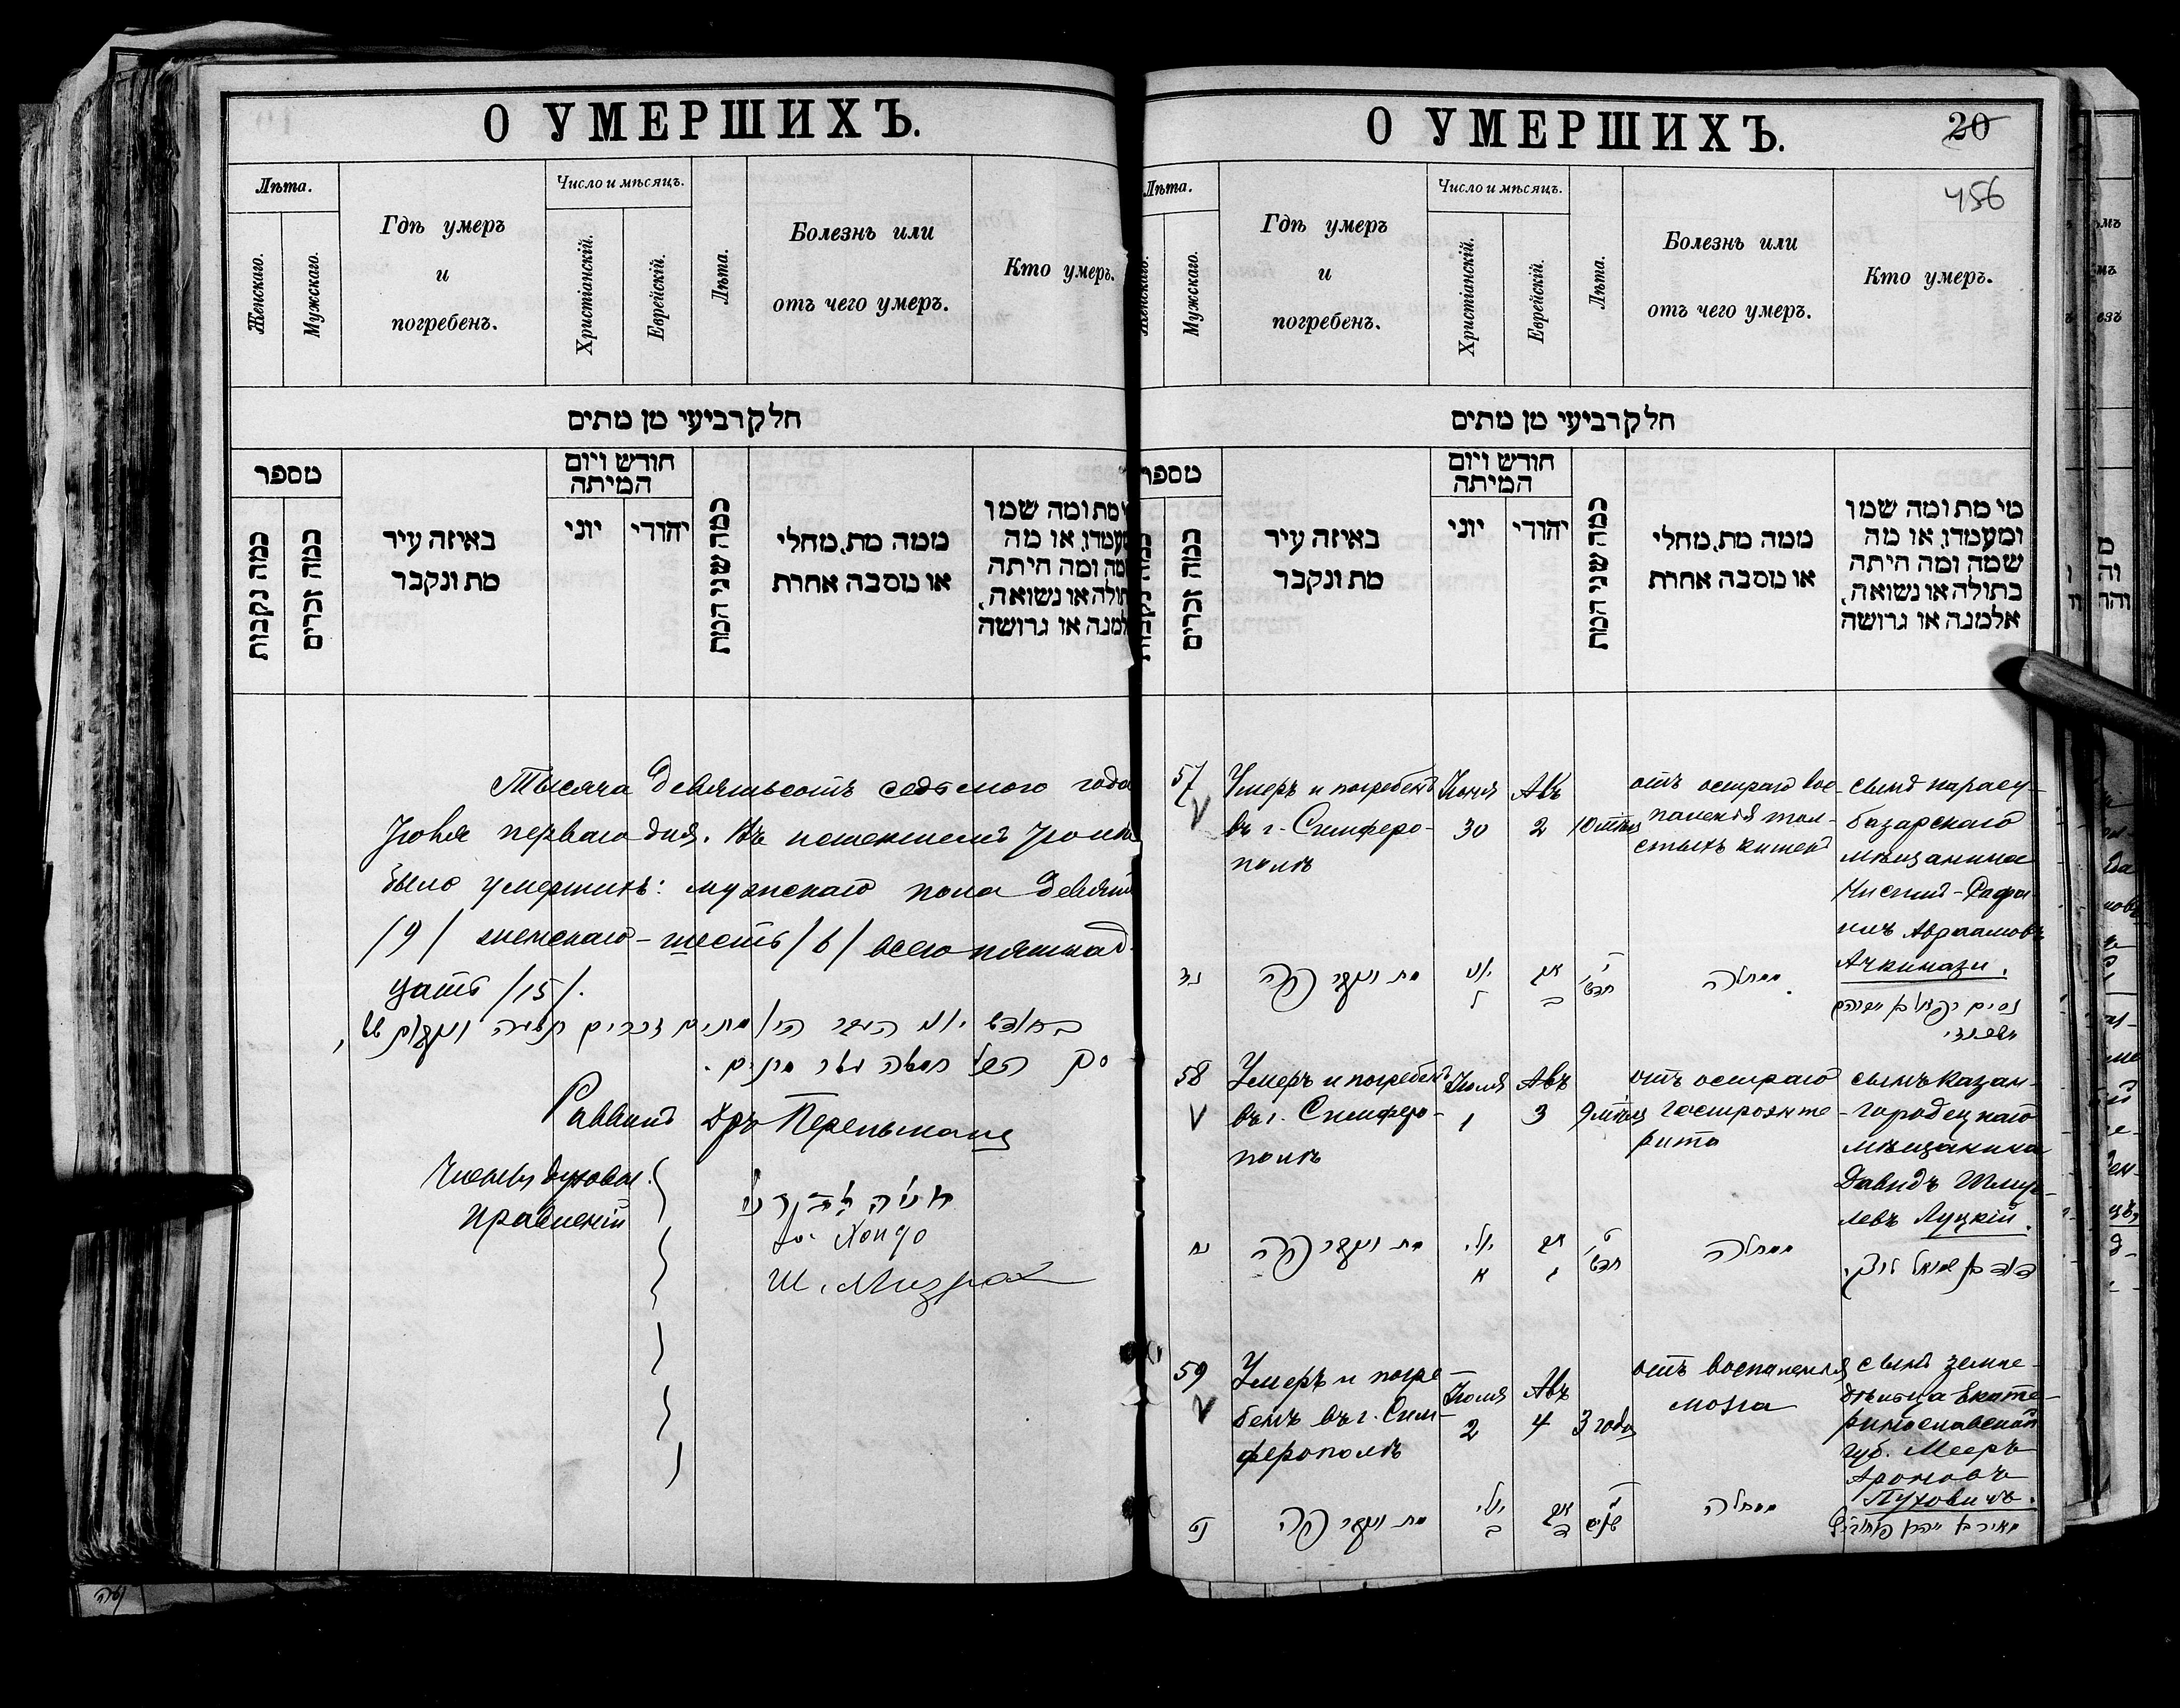 О УМЕРШИХЪ.
Лѣта.
Женскаго.
Мужскаго.
Гдѣ умеръ
и
погребенъ.
Число и мѣсяцъ.
Христіанскій.
Еврейскій.
Лѣта.
Болезнь или
отъ чего умеръ.
Кто умеръ.
חלק רביעי מן מתים
מספר
כמה נקבות
כמה זכרים
באיזה עיר
מת ונקבר
חודש ויום
המיתה
יוני
יהודי
כמה שני המת
ממה מת, מחלי
או מסבה אחרת
מת ומה שמו
או מה
ומה היתה
או נשואה,
או גרושה
Тысяча девятьсотъ седьмого года
Іюля перваго дня. Въ истекшемъ Іюнѣ
было умершихъ: мужскаго пола девять
/9/ женскаго - шесть /6/ всего пятнад-
цать /15/.
Раввинъ Др. Перельманъ
Члены духовн.
Правленія
Хондо
Ш. Мизрах
О УМЕРШИХЪ.
20
456
Лѣта.
Женскаго.
Мужскаго.
Гдѣ умеръ
и
погребенъ.
Число и мѣсяцъ.
Христіанскій.
Еврейскій.
Лѣта.
Болезнь или
отъ чего умеръ.
Кто умеръ.
חלק רביעי מן מתים
מספר
כמה זכרים
באיזה עיר
מת ונקבר
חודש ויום
המיתה
יוני
יהודי
כמה שני המת
ממה מת, מחלי
או מסבה אחרת
מי מת ומה שמו
ומעמדו, או מה
שמה ומה היתה
בתולה או נשואה,
אלמנה או גרושה
57
V
Умеръ и погребенъ
въ г. Симферо-
полѣ
Іюня
30
Авъ
2
10 мѣсц
отъ остраго вос-
паленія тол-
стыхъ кишекъ
сынъ карасу-
базарскаго
мѣщанина
Нисимъ-Рафа-
илъ Авраамовъ
Ачкинази.
מת ונקבר פה
אב
ב
ל
חדש
ממחלה
58
V
Умеръ и погребенъ
въ г. Симферо-
полѣ
Іюля
1
Авъ
3
9 мѣсц
отъ остраго
гастроэнте-
рита
сынъ Казан-
городецкаго
мѣщанина
Давидъ Шмуй-
левъ Луцкій.
נח
מת ונקבר פה
יולי
א
אב
ג
ט
חדש
ממחלה
דוד בן שמואל לוצקי
59
V
Умеръ и погре-
бенъ въ г. Сим-
ферополѣ
Іюля
2
Авъ
4
3 года
отъ воспаленія
мозга
сынъ земле-
дѣльца Екате-
ринославской
губ. Мееръ
Ароновъ
Пуховичъ.
נט
מת ונקבר פה
יולי
ב
אב
ד
ג
שנים
ממחלה
מאיר בן אהרן פוחוביץ